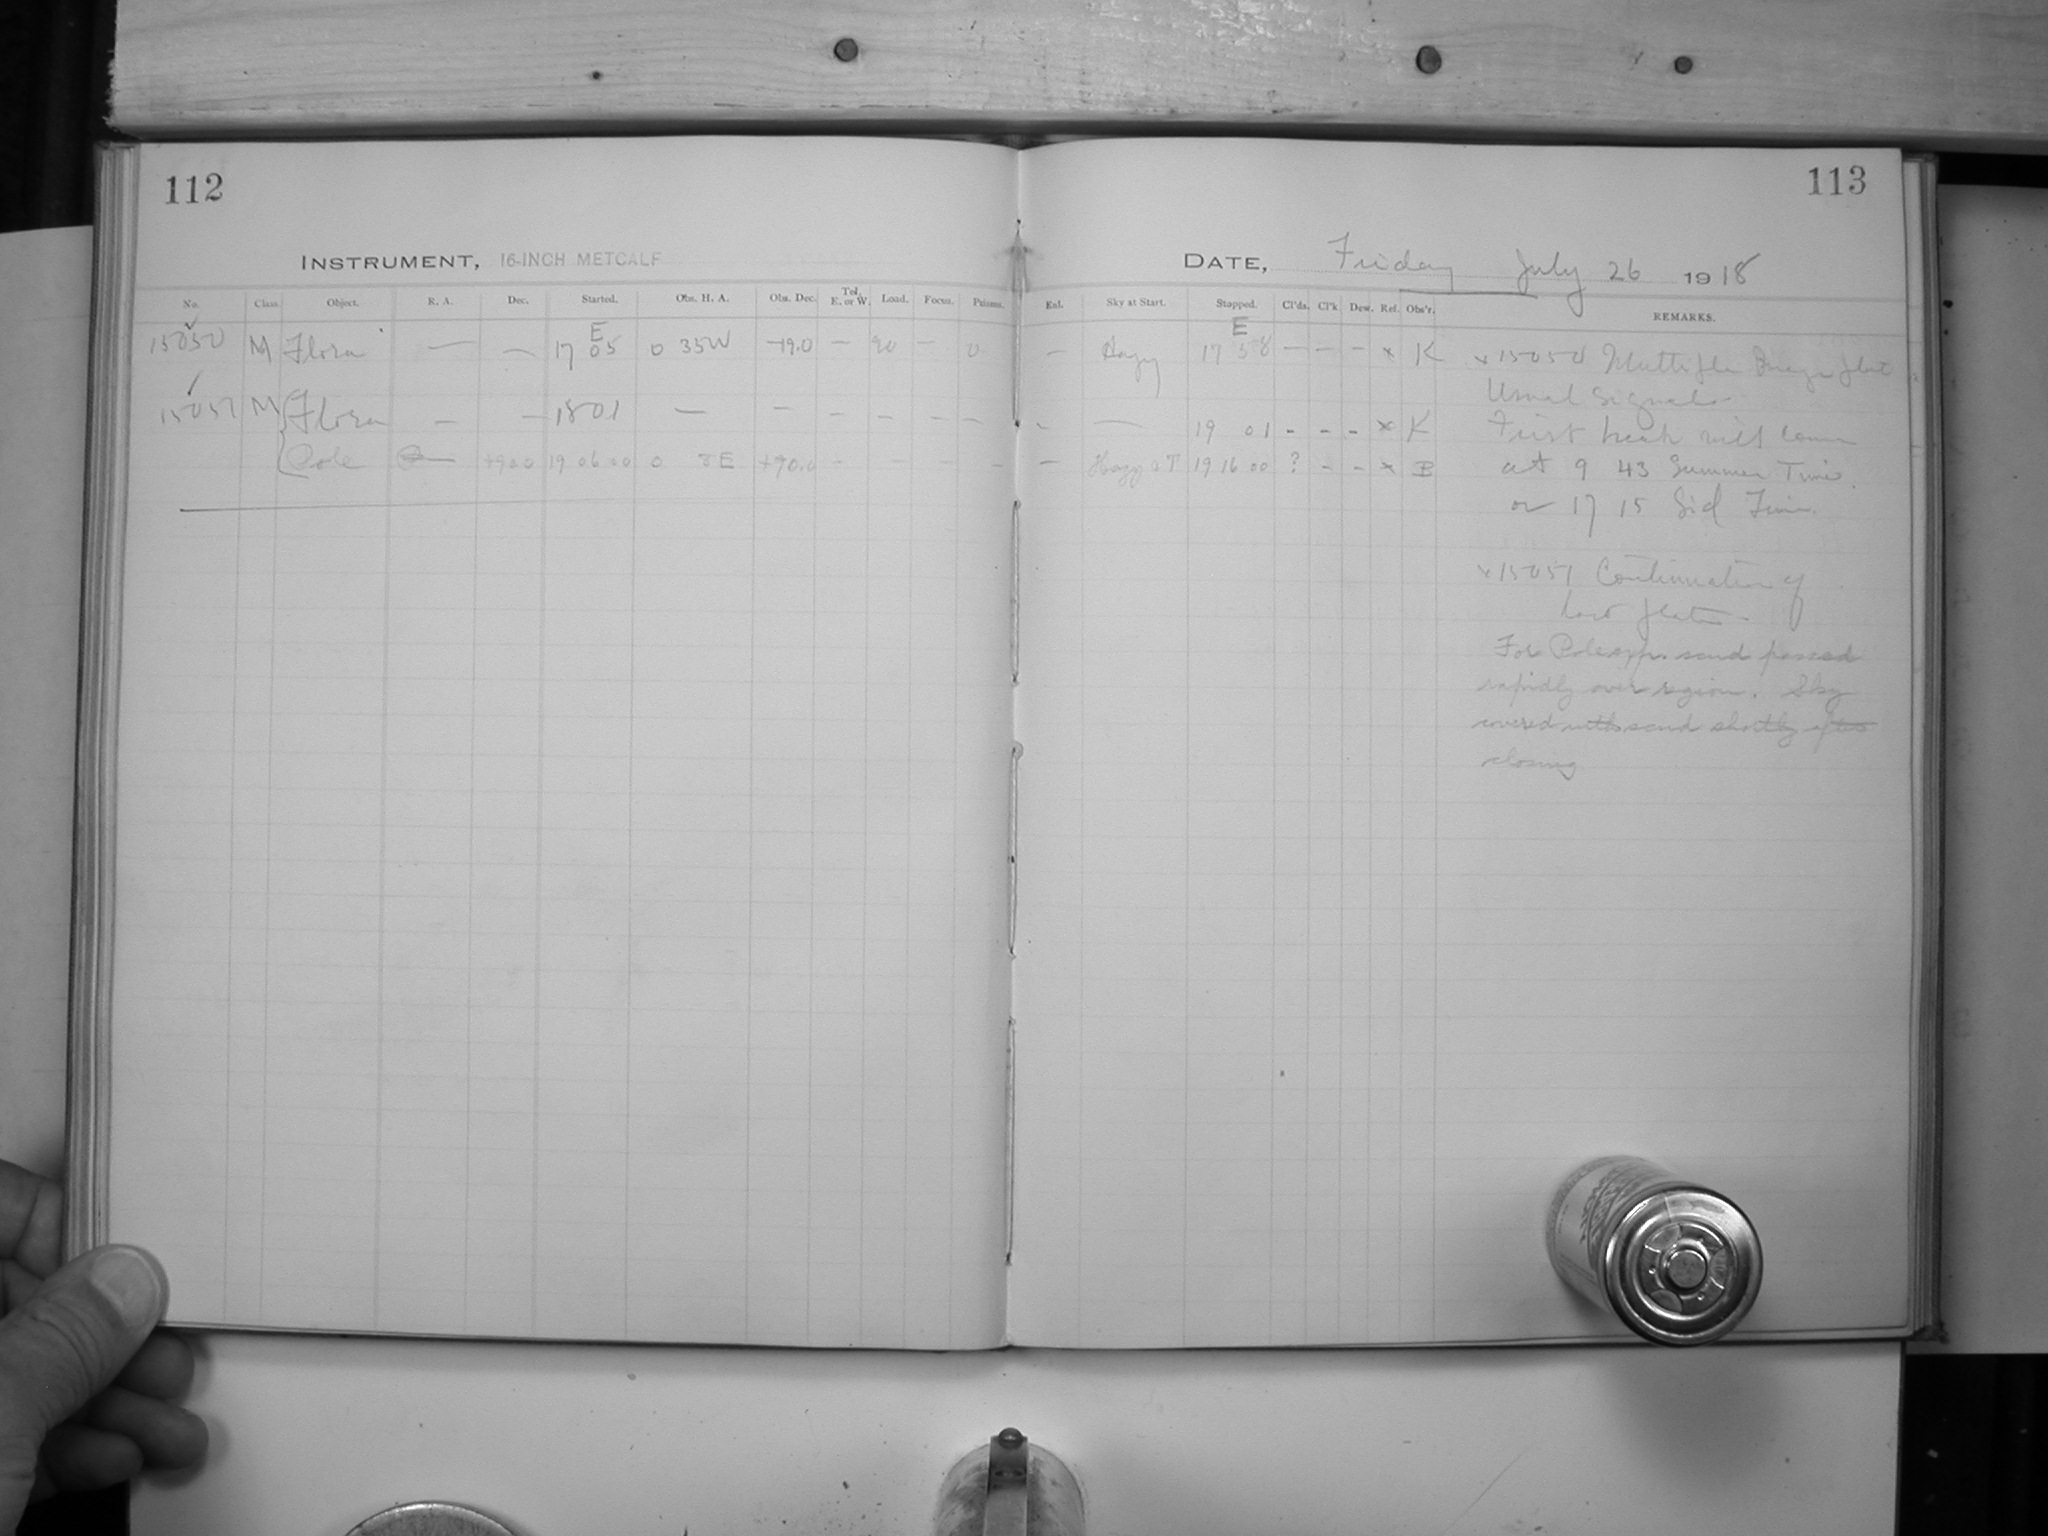 112
INSTRUMENT, 16-INCH METCALF
No. Class. Object. R. A. Dec. Started. Obs. H. A. Obs. Dec. Tel. E. or W. Load. Focus. Prisms.
E
15050 M Flora — — 17 05 0 35W -19.0 — 90 — 0
15051 M Flora — — 18 01 — — — — — —
Pole +90.0 19 06 00 0 8E +90.0 - - - -
113
DATE, Friday July 26 1918
Exl. Sky at Start. Stopped. Cl'ds. Cl'k Dew. Ref. Obs'r. REMARKS.
E
— Hazy 17 58 — — — x K
- — 19 01 - - - x K
— Hazy 19 16 00 ? - - x B
x 15050 Multiple Image
Usual Signals
First break will come
at 9 43 Summer Time.
or 17 15 Sid Time.
x 15051 Continuation of
last plate.
For Pole exp. scud passed
rapidly over region. Sky
covered with scud shortly after
closing